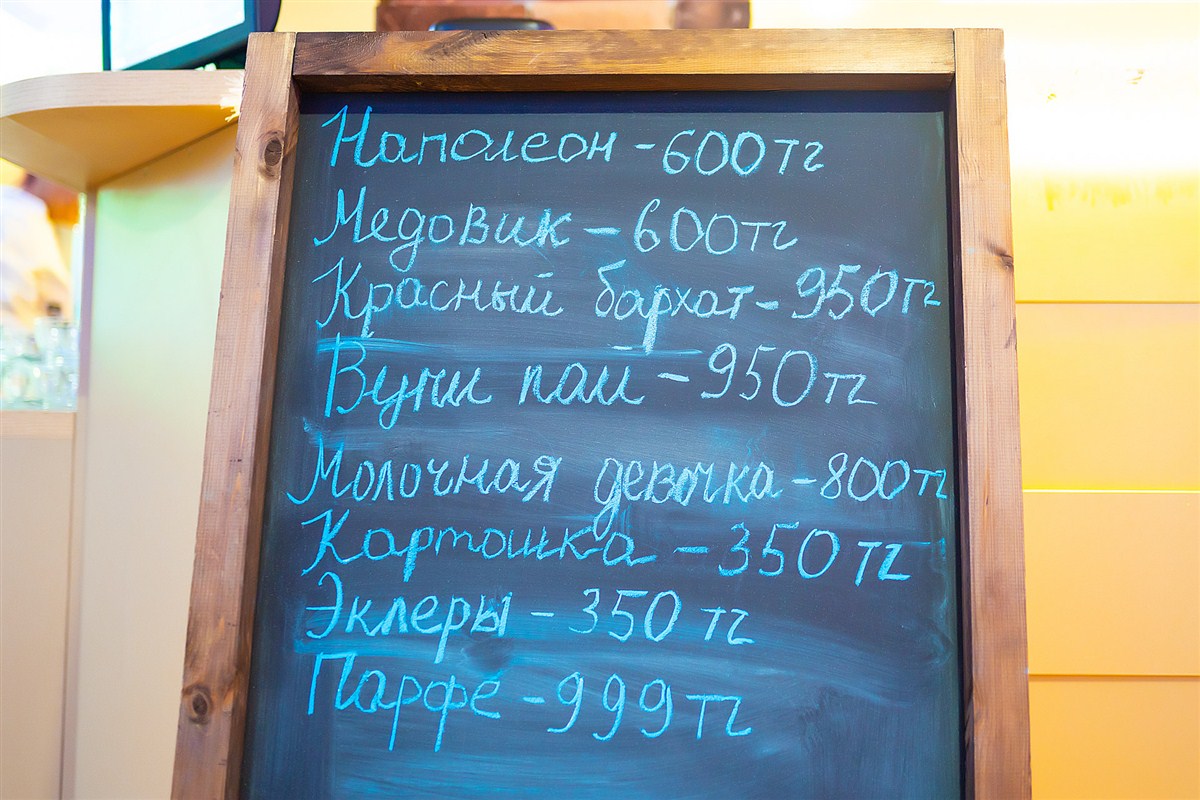 Наполеон - 600 тг
Медовик - 600 тг
Красный бархат - 950 тг
Вупи пай - 950 тг
Молочная девочка - 800 тг
Картошка - 350 тг
Эклеры - 350 тг
Парфе - 999 тг